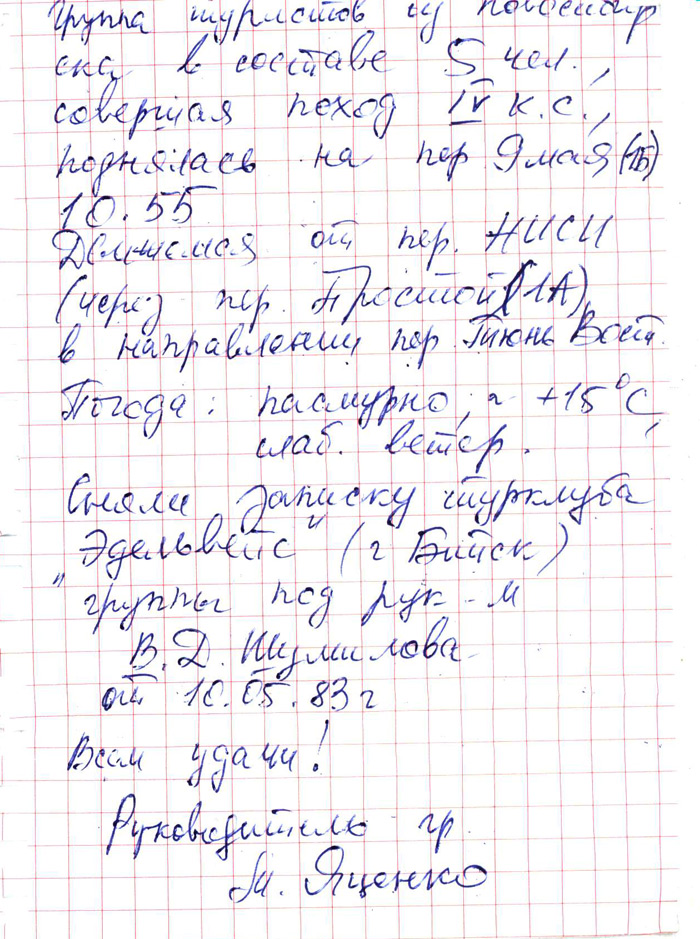 Группа туристов из Новосибир
ска в составе 5 чел.,
совершая поход IV к.с.,
поднялась на пер 9 мая (1Б)
10.55
Движемся от пер. НИСИ
(через пер. Простой (1А)
в направлении пер. Тюнь Вост.
Погода: пасмурно, ~ +15°С,
слаб. ветер.
Сняли записку турклуба
"Эдельвейс" (г Бийск)
группы под рук-м
В.Д. Шумилова
от 10.05.83 г
Всем удачи!
Руководитель гр
М. Яценко